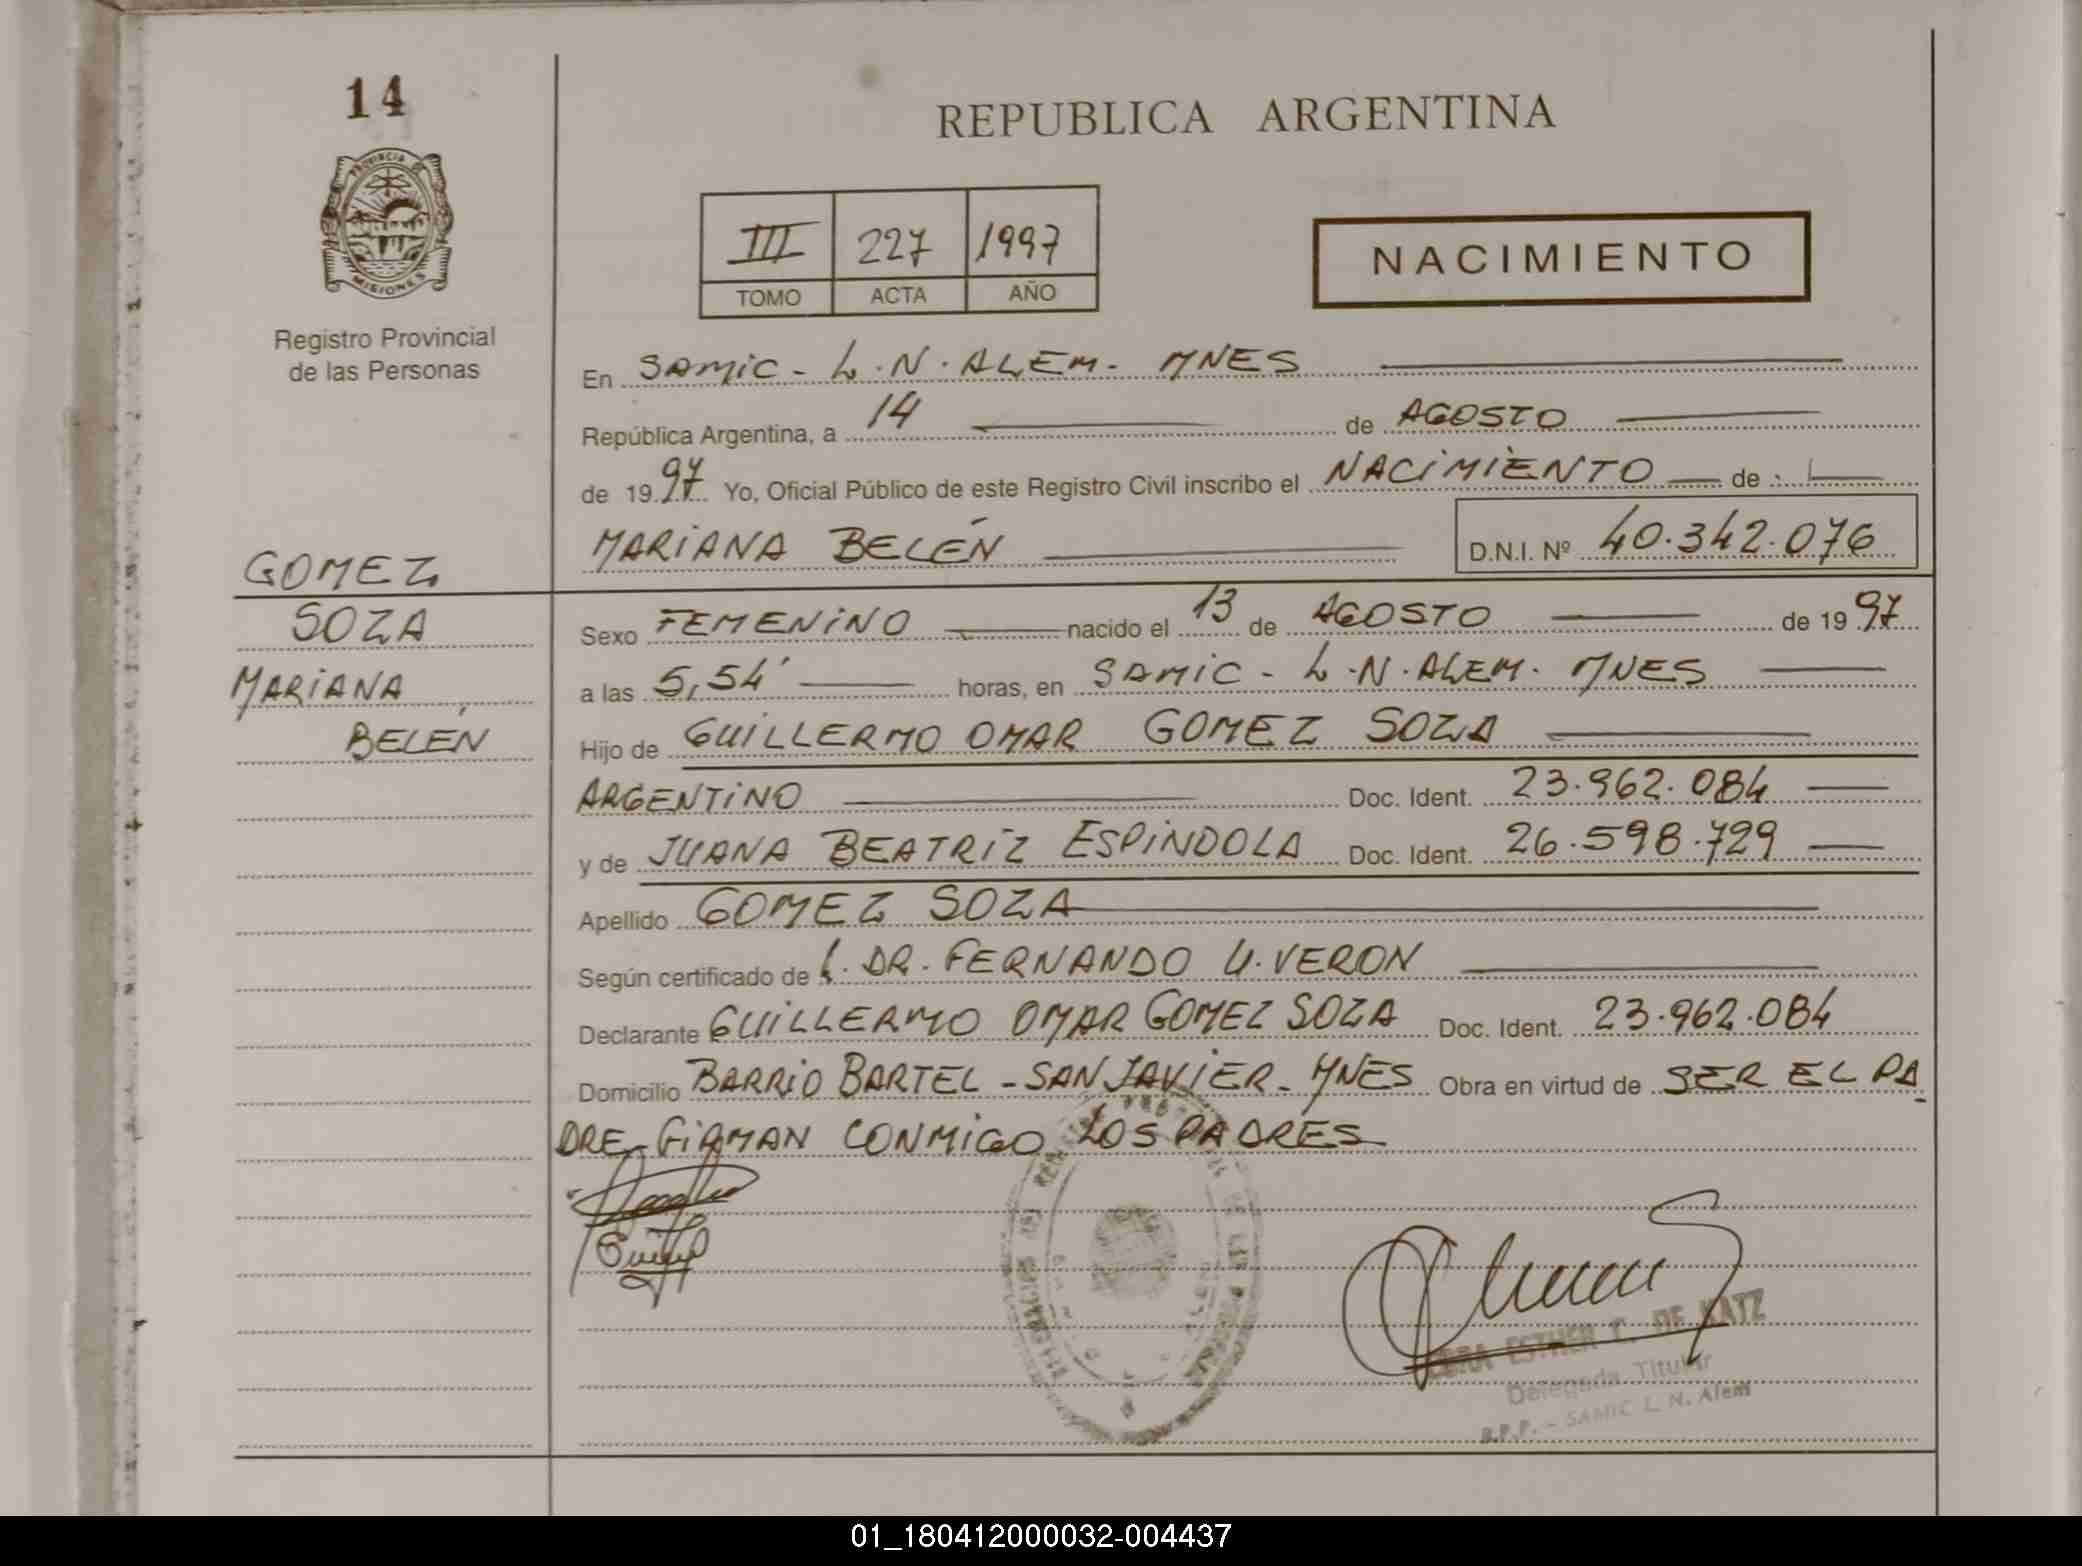 14
PROVINCIA DE
MISIONES
Registro Provincial
de las Personas
GOMEZ
SOZA
MARIANA
BELÉN
REPUBLICA ARGENTINA
III 227 1997
TOMO ACTA AÑO
NACIMIENTO
En SAMIC - L.N. ALEM - MNES
República Argentina, a 14 de AGOSTO
de 1997 Yo, Oficial Público de este Registro Civil inscribo el NACIMIENTO de
MARIANA BELÉN D.N.I. Nº 40.342.076
Sexo FEMENINO nacido el 13 de AGOSTO de 1997
a las 5,54' horas, en SAMIC - L.N. ALEM - MNES
Hijo de GUILLERMO OMAR GOMEZ SOZA
ARGENTINO Doc. Ident. 23.962.084
y de JUANA BEATRIZ ESPINDOLA Doc. Ident. 26.598.729
Apellido GOMEZ SOZA
Según certificado de DR. FERNANDO U. VERON
Declarante GUILLERMO OMAR GOMEZ SOZA Doc. Ident. 23.962.084
Domicilio BARRIO BARTEL - SAN JAVIER - MNES Obra en virtud de SER EL PA
DRE - FIRMAN CONMIGO LOS PADRES
ESTHER C. DE KATZ
Delegada Titular
R.P.P. - SAMIC L. N. Alem
01_180412000032-004437